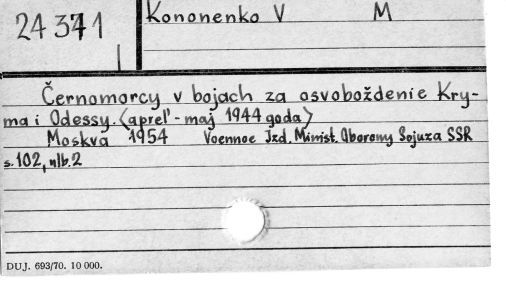 24 371
Kononenko V M
Černomorcy v bojach za osvoboždenie Kry-
ma i Odessy. (aprel' - maj 1944 goda)
Moskva 1954 Voennoe Izd. Minist. Oborony Sojuza SSR
s. 102, nlb. 2
DUJ. 693/70. 10 000.